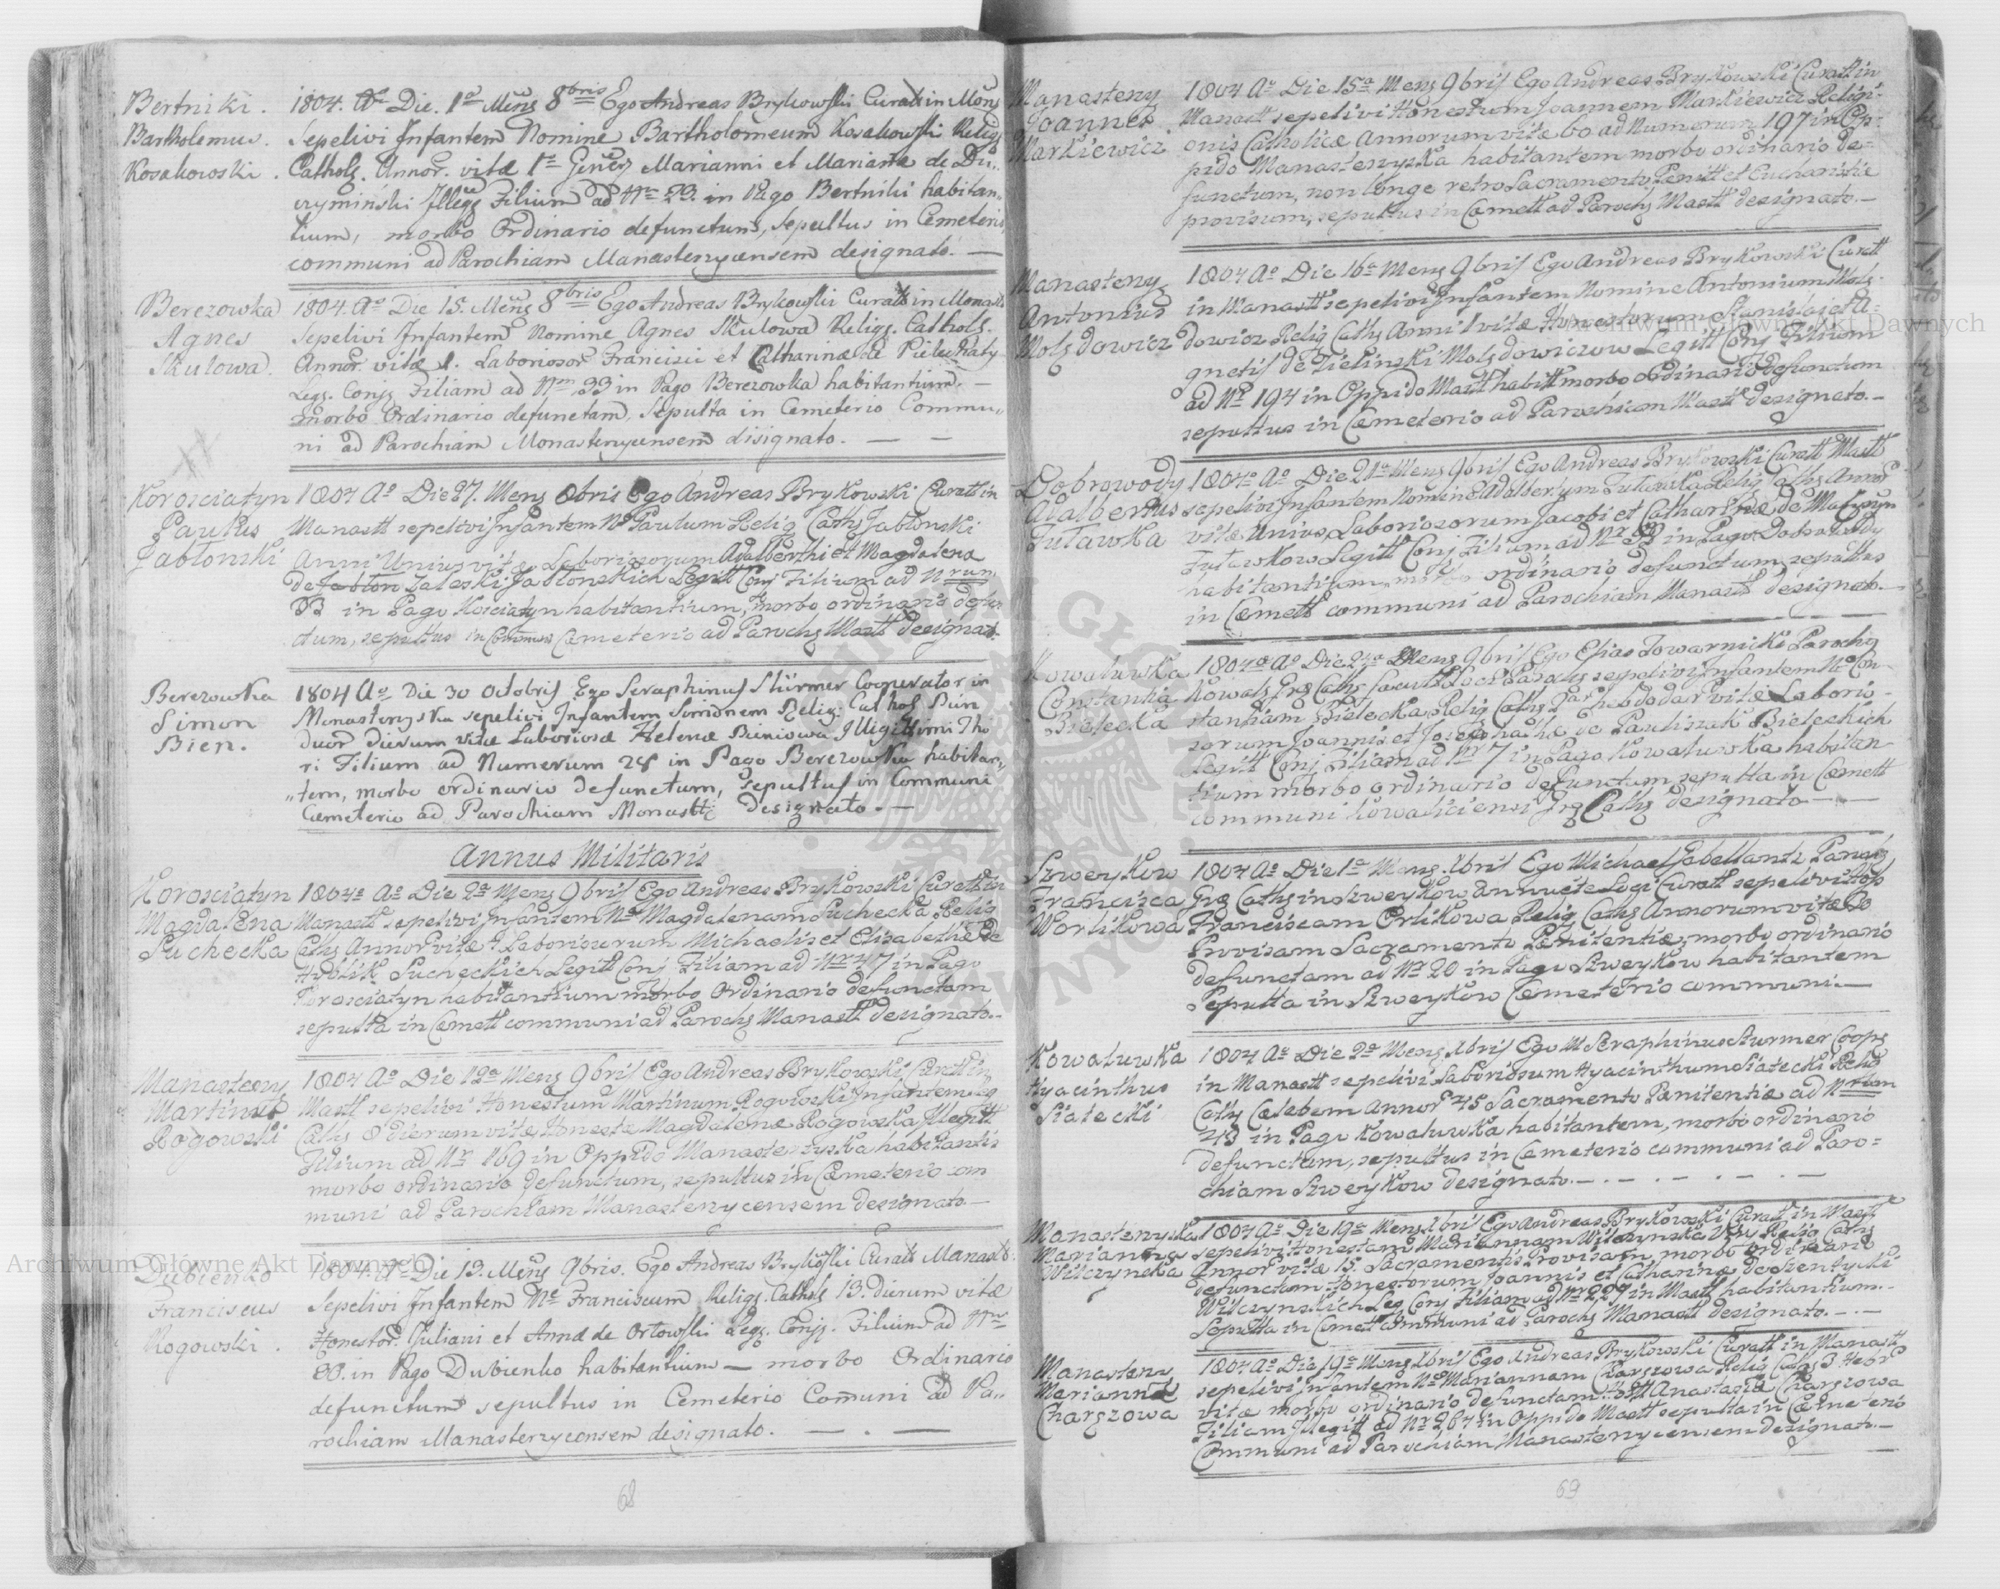 Bertniki.
Bartholemus.
Kosakowski.
1804. Ao Die. 1a Mens 8bris Ego Andreas Brykowski Curatt in Mons
Sepelivi Infantem Nomine Bartholomeum Kosakowski Religs
Catholg. Annor. vitæ 1. Generg Marianni et Marianæ de Du-
rymiński Illegg Filium ad Nro 23. in Pago Bertniki habitan-
tium, morbo Ordinario defunctum, sepultus in Cemeterio
communi ad Parochiam Manasterzycensem designato. —
Berezowka
Agnes
Skulowa.
1804. Ao Die 15. Mens 8bris Ego Andreas Brykowski Curatt in Monast
Sepelivi Infantem Nomine Agnes Skulowa Religg. Catholg.
Annor. vitæ 1. Laboriosor Francisci et Catharinæ de Pieluchaty
Legg. Conjg Filiam ad Nrm 33 in Pago Berezowka habitantium. —
morbo Ordinario defunctam, Sepulta in Cemeterio Commu-
ni ad Parochiam Monasterzycensem disignato. — —
Korosciatyn
Paulus
Jabłonski
1804 Ao Die 27. Mens 8bris Ego Andreas Brykowski Curatt in
Manastt sepelivi Infantem No Paulum Relig Caths Jabłonski
Anni Unius vitæ Laboriosorum Adalberthi et Magdalena
de Zaleski Jabłonskich Legitt Conj Filium ad Nrum
33 in Pago Kosciatyn habitantium, morbo ordinario defun
ctum, sepultus in Communi Cæmeterio ad Parochg Mastt designat.
Berezowka
Simon
Bien.
1804 Ao Die 30 Octobris Ego Seraphinus Stürmer Cooperator in
Monasterzyska sepelivi Infantem Simonem Relig: Cathol Bien
duor dierum vitæ Laboriosæ Helenæ Bieniowa Illigittimi Tho
ri Filium ad Numerum 28 in Pago Berezowka habitan-
tem, morbo ordinario defunctum, Sepultus in Communi
Cæmeterio ad Parochiam Monastt designato. —
Annus Militaris
Korosciatyn
Magdalena
Suchecka
1804o Ao Die 2a Mens 9bris Ego Andreas Brykowski Curatt in
Manastt sepelivi Infantem No Magdalenam Suchecka Relig
Caths Annor vitæ Laboriosorum Michaelis et Elisabethæ de
Hyblik Sucheckich Legitt Conj Filiam ad Nr 47 in Pago
Korosciatyn habitantium morbo Ordinario defunctam
sepulta in Cæmett communi ad Parochg Manastt designato. —
Manasterzy
Martinus
Rogowski
1804 Ao Die 12a Mens 9bris Ego Andreas Brykowski Curatt in
Mastt sepelivi Honestum Martinum Rogowski Infantem Relig
Caths 8 dierum vitæ Honestæ Magdalenæ Rogowska Illegitt
Filium ad Nr 169 in Oppido Manasterzyska habitantis
morbo ordinario defunctum, sepultus in Cæmeterio com
muni ad Parochiam Manasterzycensem designato —
Dubienko
Franciscus
Rogowski.
1804. Ao Die 13. Mens 9bris. Ego Andreas Brykowski Curatt Manastt.
Sepelivi Infantem No Franciscum Religg. Catholg 13. dierum vitæ
Honestor. Juliani et Annæ de Orłowski Legg. Conjg. Filium ad Nro
80. in Pago Dubienko habitantium — morbo Ordinario
defunctum sepultus in Cemeterio Comuni ad Pa-
rochiam Manasterzyconsem designato. — . —
68
Manasterzy
Joannes
Markiewicz
1804 Ao Die 15a Mens 9bris Ego Andreas Brykowski Curatt in
Manastt sepelivi Honestum Joannem Markiewicz Religi-
onis Catholicæ Annorum vitæ 60 ad Numerum 197 in Op-
pido Manasterzyska habitantem morbo ordinario de=
functum, non longe retro Sacramento Penitt et Eucharistie
provisum, sepultus in Cæmett ad Parochg Mastt designato. —
Manasterzy
Antonius
Mołsdowicz
1804 Ao Die 16a Mens 9bris Ego Andreas Brykowski Curatt
in Manastt sepelivi Infantem Nomine Antonium Mołs-
dowicz Relig Caths Anni 1 vitæ Honestorum Stanislai et A-
gnetis de Zielinski Mołsdowiczow Legitt Conj Filium
ad Nr 194 in Oppido Mastt habitt morbo ordinario defunctum
sepultus in Cæmeterio ad Parochiam Mastt designato. —
Dobrowody
Adalbertus
Tutawka
1804o Ao Die 21a Mens 9bris Ego Andreas Brykowski Curatt Mastt
sepelivi Infantem Nomine Adalbertum Tutawka Relig Caths Annor
vitæ Unius, Laboriosorum Jacobi et Catharinæ de Martynyn
Tutawkow Legitt Conj Filium ad Nr 33 in Pago Dobrowody
habitantium, morbo ordinario defunctum, sepultus
in Cæmett communi ad Parochiam Manastt designato. —
Kowaluwka
Constantia
Bielecka
1804o Ao Die 24a Mens 9bris Ego Elias Towarnicki Parochg
Kowals Grg Caths sepelivi Infantem No Con-
stantiam Bielecka Relig Caths vitæ Laborio-
sorum Joannis et Josephathæ de Pauliszak Bieleckich
Legitt Conj Filiam ad Nr 7 in Pago Kowaluwka habitan-
tium morbo ordinario defunctum sepulta in Cæmett
communi Kowaliciensi Grg Caths designato — . —
Szweykow
Francisca
Worlikowa
1804 Ao Die 1a Mens. Xbris Ego Michael Parochg
Grg Caths in Szweykow annuente Loci Curatt sepelivi
Franciscam Orlikowa Relig Caths Annorum vitæ
Provisam Sacramento Pænitentiæ, morbo ordinario
defunctam ad Nr 20 in Pago Szweykow habitantem
Sepulta in Szweykow Cæmeterio communi. —
Kowaluwka
Hyacinthus
Siatecki
1804 Ao Die 2a Mens Xbris Ego Seraphinus Sturmer Coops
in Manastt sepelivi Laboriosum Hyacinthum Siatecki Relig
Caths Cælebem Annor 45 Sacramento Pænitentiæ ad Nrum
48 in Pago Kowaluwka habitantem, morbo ordinario
defunctum, sepultus in Cæmeterio communi ad Paro=
chiam Szweykow designato. — . — . — . —
Manasterzyska
Marianna
Wilczynska
1804 Ao Die 19a Mens Xbris Ego Andreas Brykowski Curatt in Mastt
sepelivi Honestam Mariannam Wilczynska Relig Caths
Annor vitæ 15. Sacramentis Provisam, morbo ordinario
defunctam Honestorum Joannis et Catharinæ de Szentycki
Wilczynskich Leg Conj Filiam ad Nr 229 in Mastt habitantium. —
Sepulta in Cæmett communi ad Parochg Manastt designato. — . —
Manasterz
Marianna
Charszowa
1804 Ao Die 19a Mens Xbris Ego Andreas Brykowski Curatt in Manastt
sepelivi Infantem No Mariannam Charszowa Relig Caths 3 Hebr
vitæ morbo ordinario defunctam Anastasiæ Charszowa
Filiam Illegitt ad Nr 264 in Oppido Mastt sepulta in Cæmeterio
Communi ad Parochiam Manasterzycensem designato. —
69
Archiwum Główne Akt Dawnych
Archiwum Główne Akt Dawnych